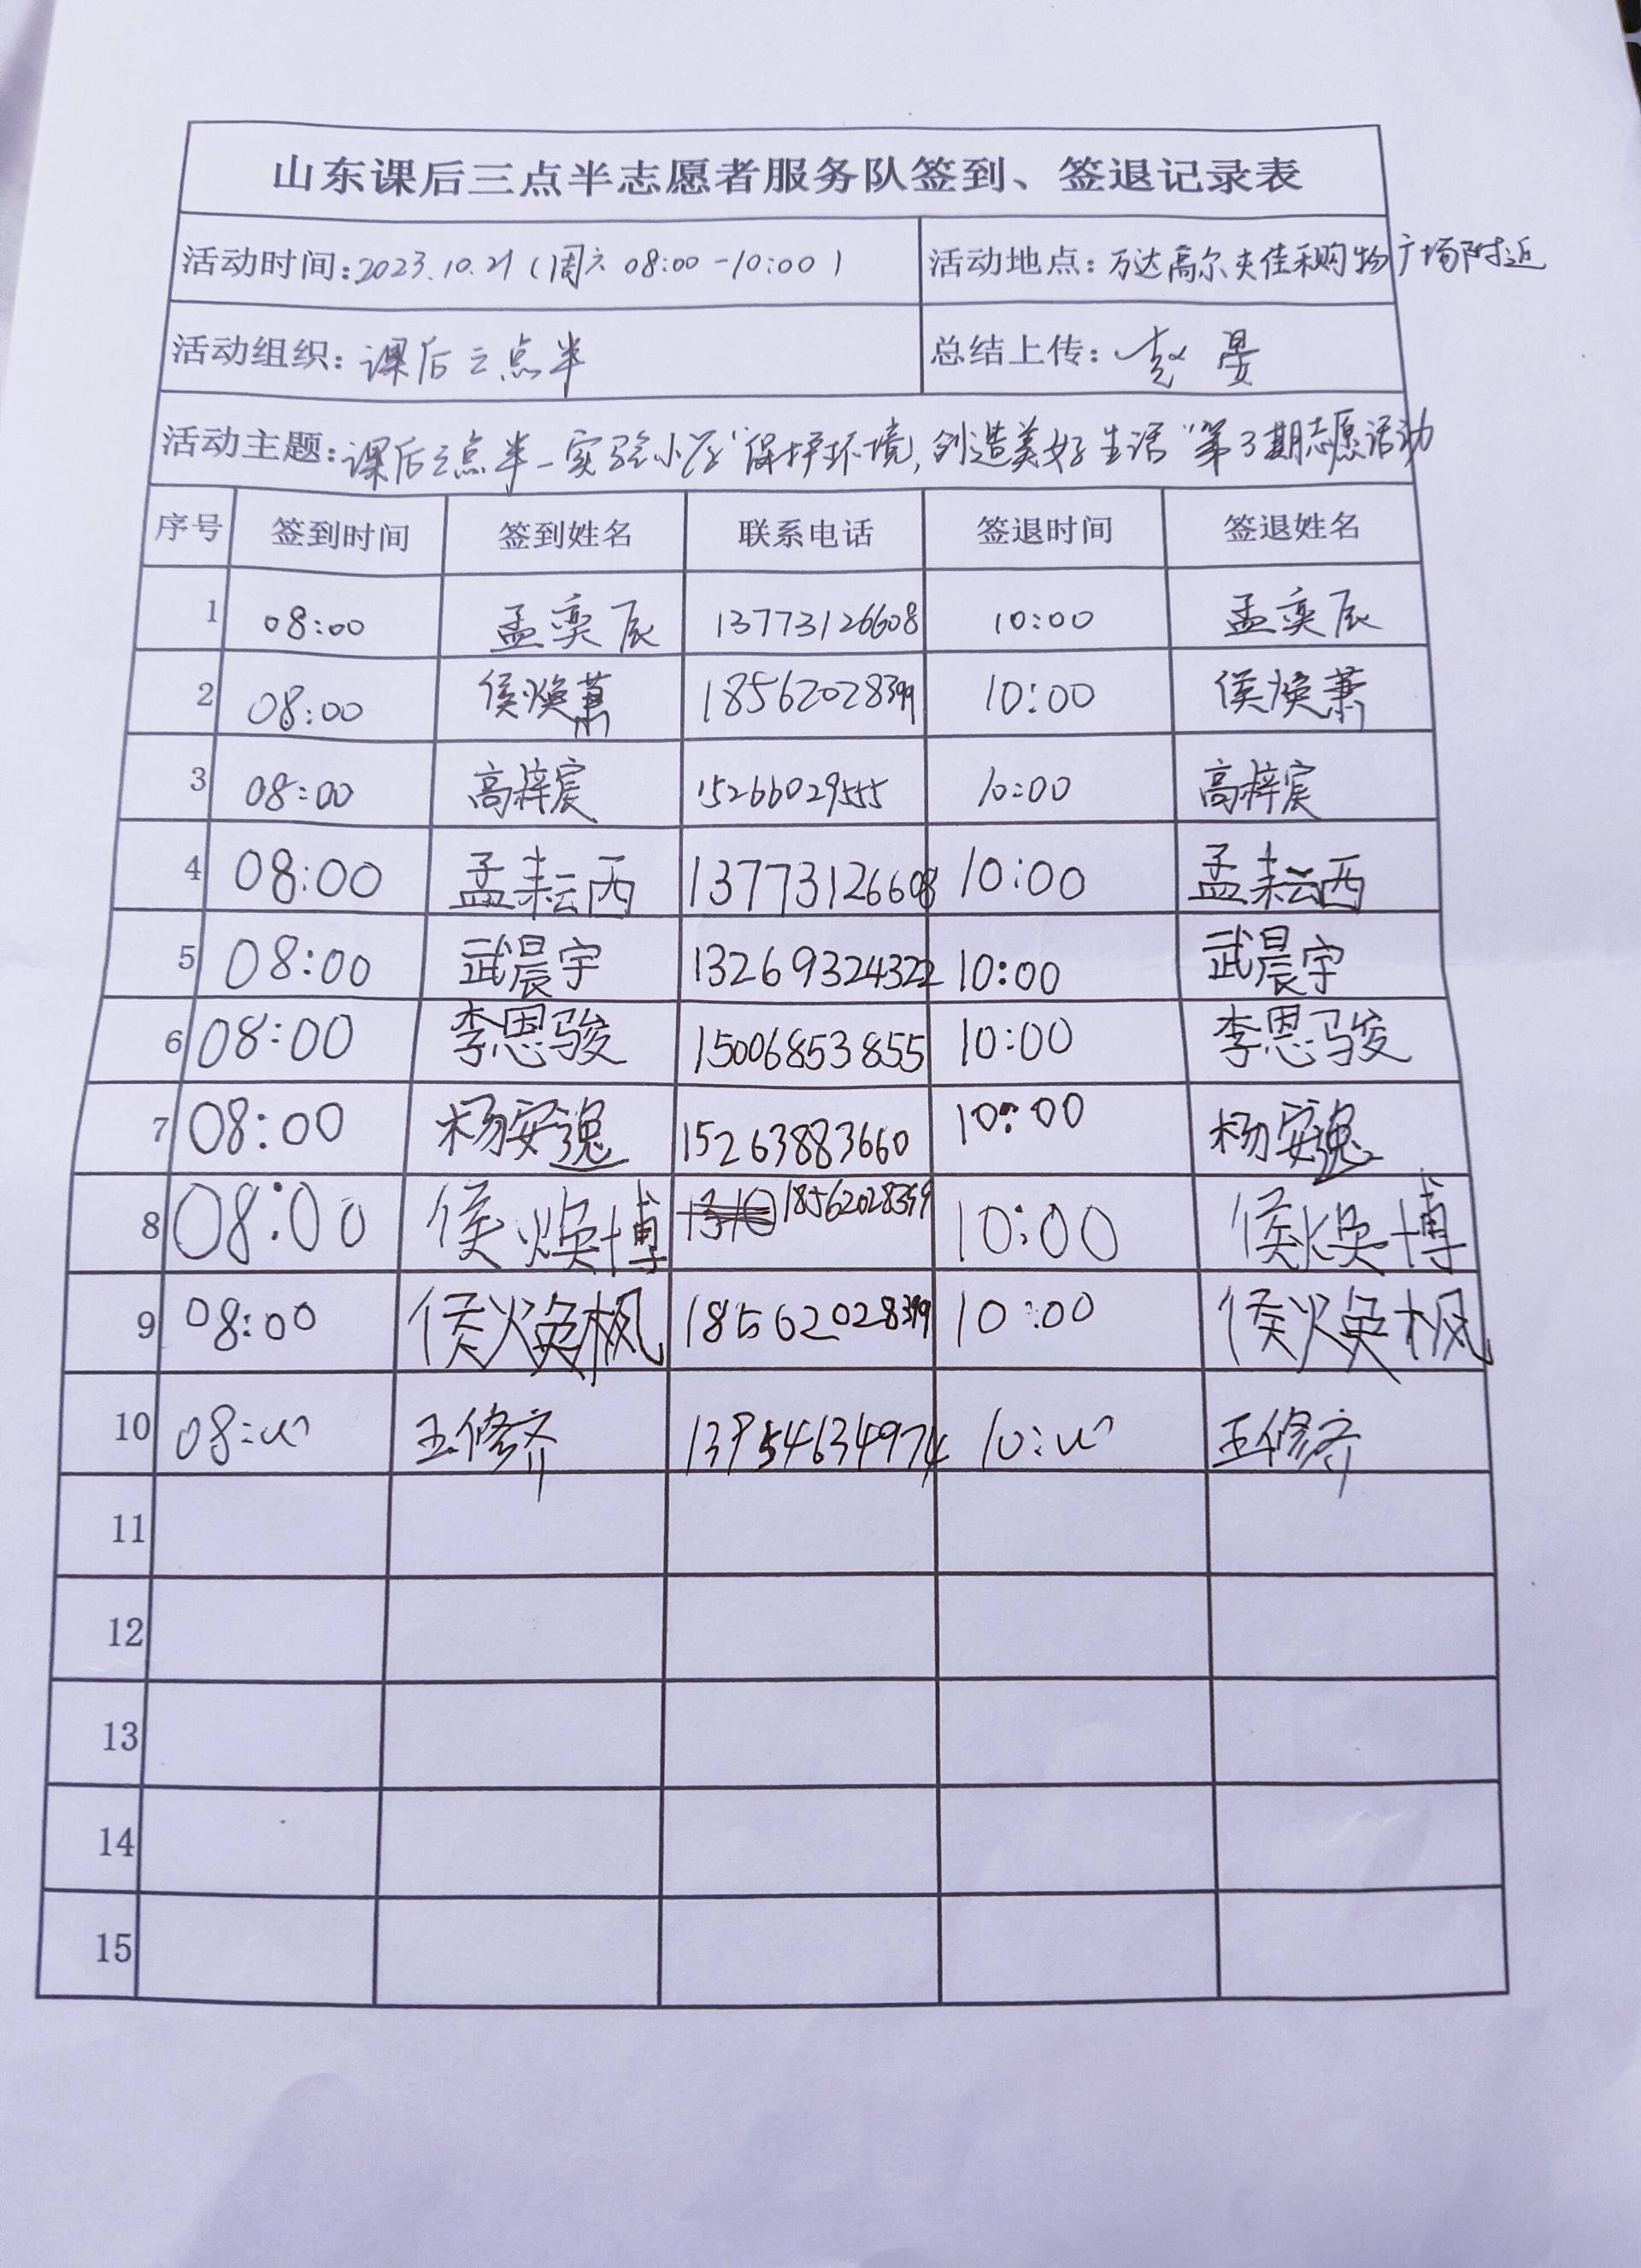 山东课后三点半志愿者服务队签到、签退记录表
活动时间:2023.10.21(周六 08:00-10:00) 活动地点:万达高尔夫佳和购物广场附近
活动组织:课后三点半 总结上传:赵晏
活动主题:课后三点半-实验小学"保护环境,创造美好生活"第3期志愿活动
序号 签到时间 签到姓名 联系电话 签退时间 签退姓名
1 08:00 孟奕辰 13773126608 10:00 孟奕辰
2 08:00 侯焕萧 18562028399 10:00 侯焕萧
3 08:00 高梓宸 15266029555 10:00 高梓宸
4 08:00 孟耘西 13773126608 10:00 孟耘西
5 08:00 武晨宇 13269324322 10:00 武晨宇
6 08:00 李恩骏 15006853855 10:00 李恩骏
7 08:00 杨安逸 15263883660 10:00 杨安逸
8 08:00 侯焕博 18562028399 10:00 侯焕博
9 08:00 侯焕枫 18562028399 10:00 侯焕枫
10 08:00 王修齐 13954634974 10:00 王修齐
11
12
13
14
15